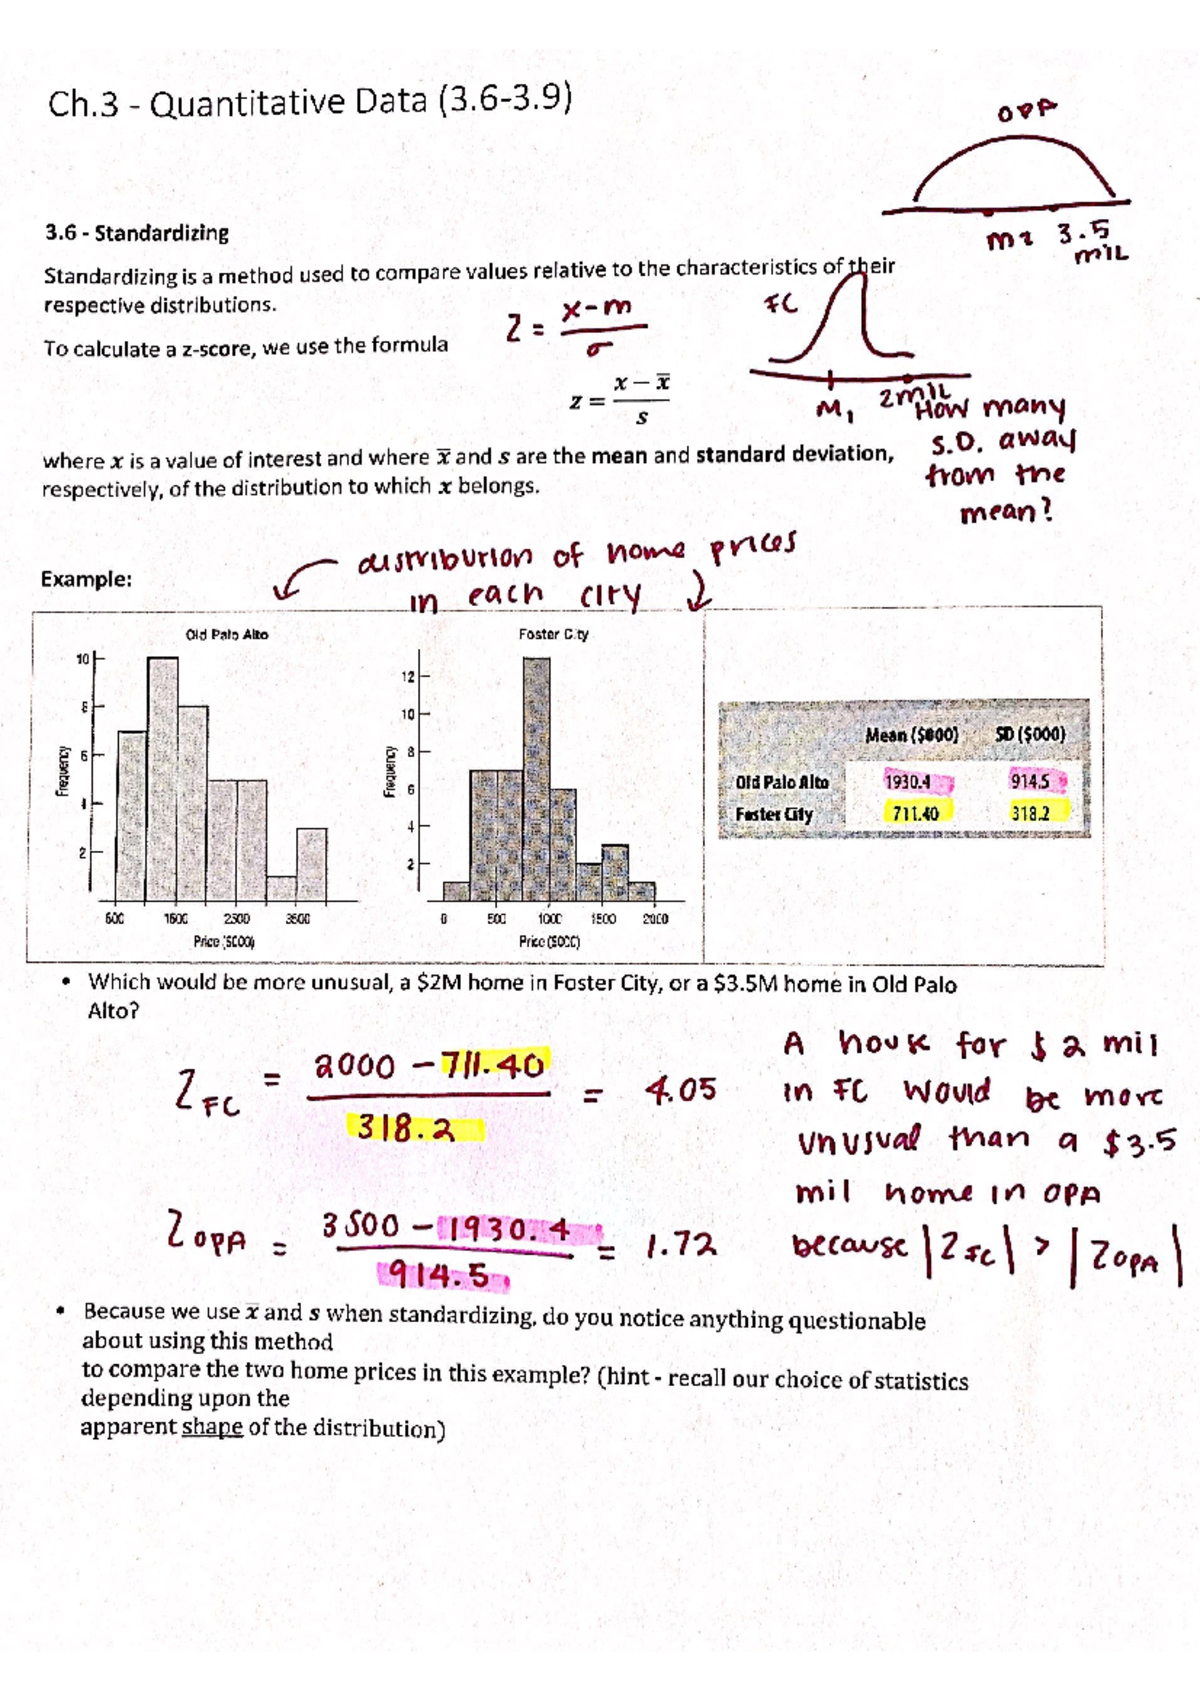 Ch.3 - Quantitative Data (3.6-3.9)
OPA
M2 3.5
MIL
3.6 - Standardizing
Standardizing is a method used to compare values relative to the characteristics of their
respective distributions.
Z = x-m
σ
FC
To calculate a z-score, we use the formula
z = x − x̅
s
M1 2MIL
How many
S.D. away
from the
mean?
where x is a value of interest and where x̅ and s are the mean and standard deviation,
respectively, of the distribution to which x belongs.
distribution of home prices
in each city
Example:
Old Palo Alto
10
8
6
4
2
Frequency
1500
2500
3500
Price ($000)
Foster City
12
10
8
6
4
2
Frequency
0
500
1000
1500
2000
Price ($000)
Mean ($000) SD ($000)
Old Palo Alto 1930.4 914.5
Foster City 711.40 318.2
• Which would be more unusual, a $2M home in Foster City, or a $3.5M home in Old Palo
Alto?
ZFC = 2000 - 711.40
318.2
= 4.05
ZOPA = 3500 - 1930.4
914.5
= 1.72
A house for $2 mil
in FC would be more
unusual than a $3.5
mil home in OPA
because |ZFC| > |ZOPA|
• Because we use x̅ and s when standardizing, do you notice anything questionable
about using this method
to compare the two home prices in this example? (hint - recall our choice of statistics
depending upon the
apparent shape of the distribution)